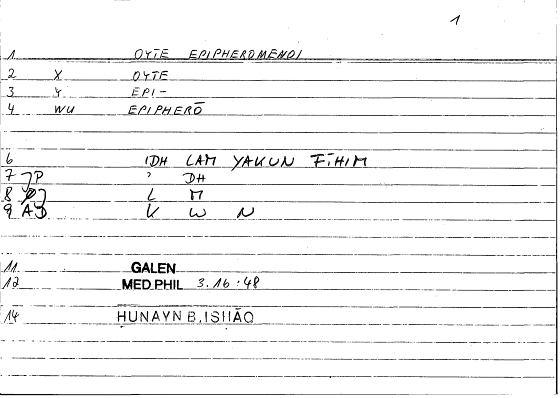 1
1 OYTE EPIPHEROMENOI
2 X OYTE
3 Y EPI-
4 WU EPIPHERŌ
6 IDH LAM YAKUN FĪHIM
7 JP ' DH
8 L M
9 AD K W N
11 GALEN
12 MED.PHIL 3.16:48
14 HUNAYN B.ISḤĀQ